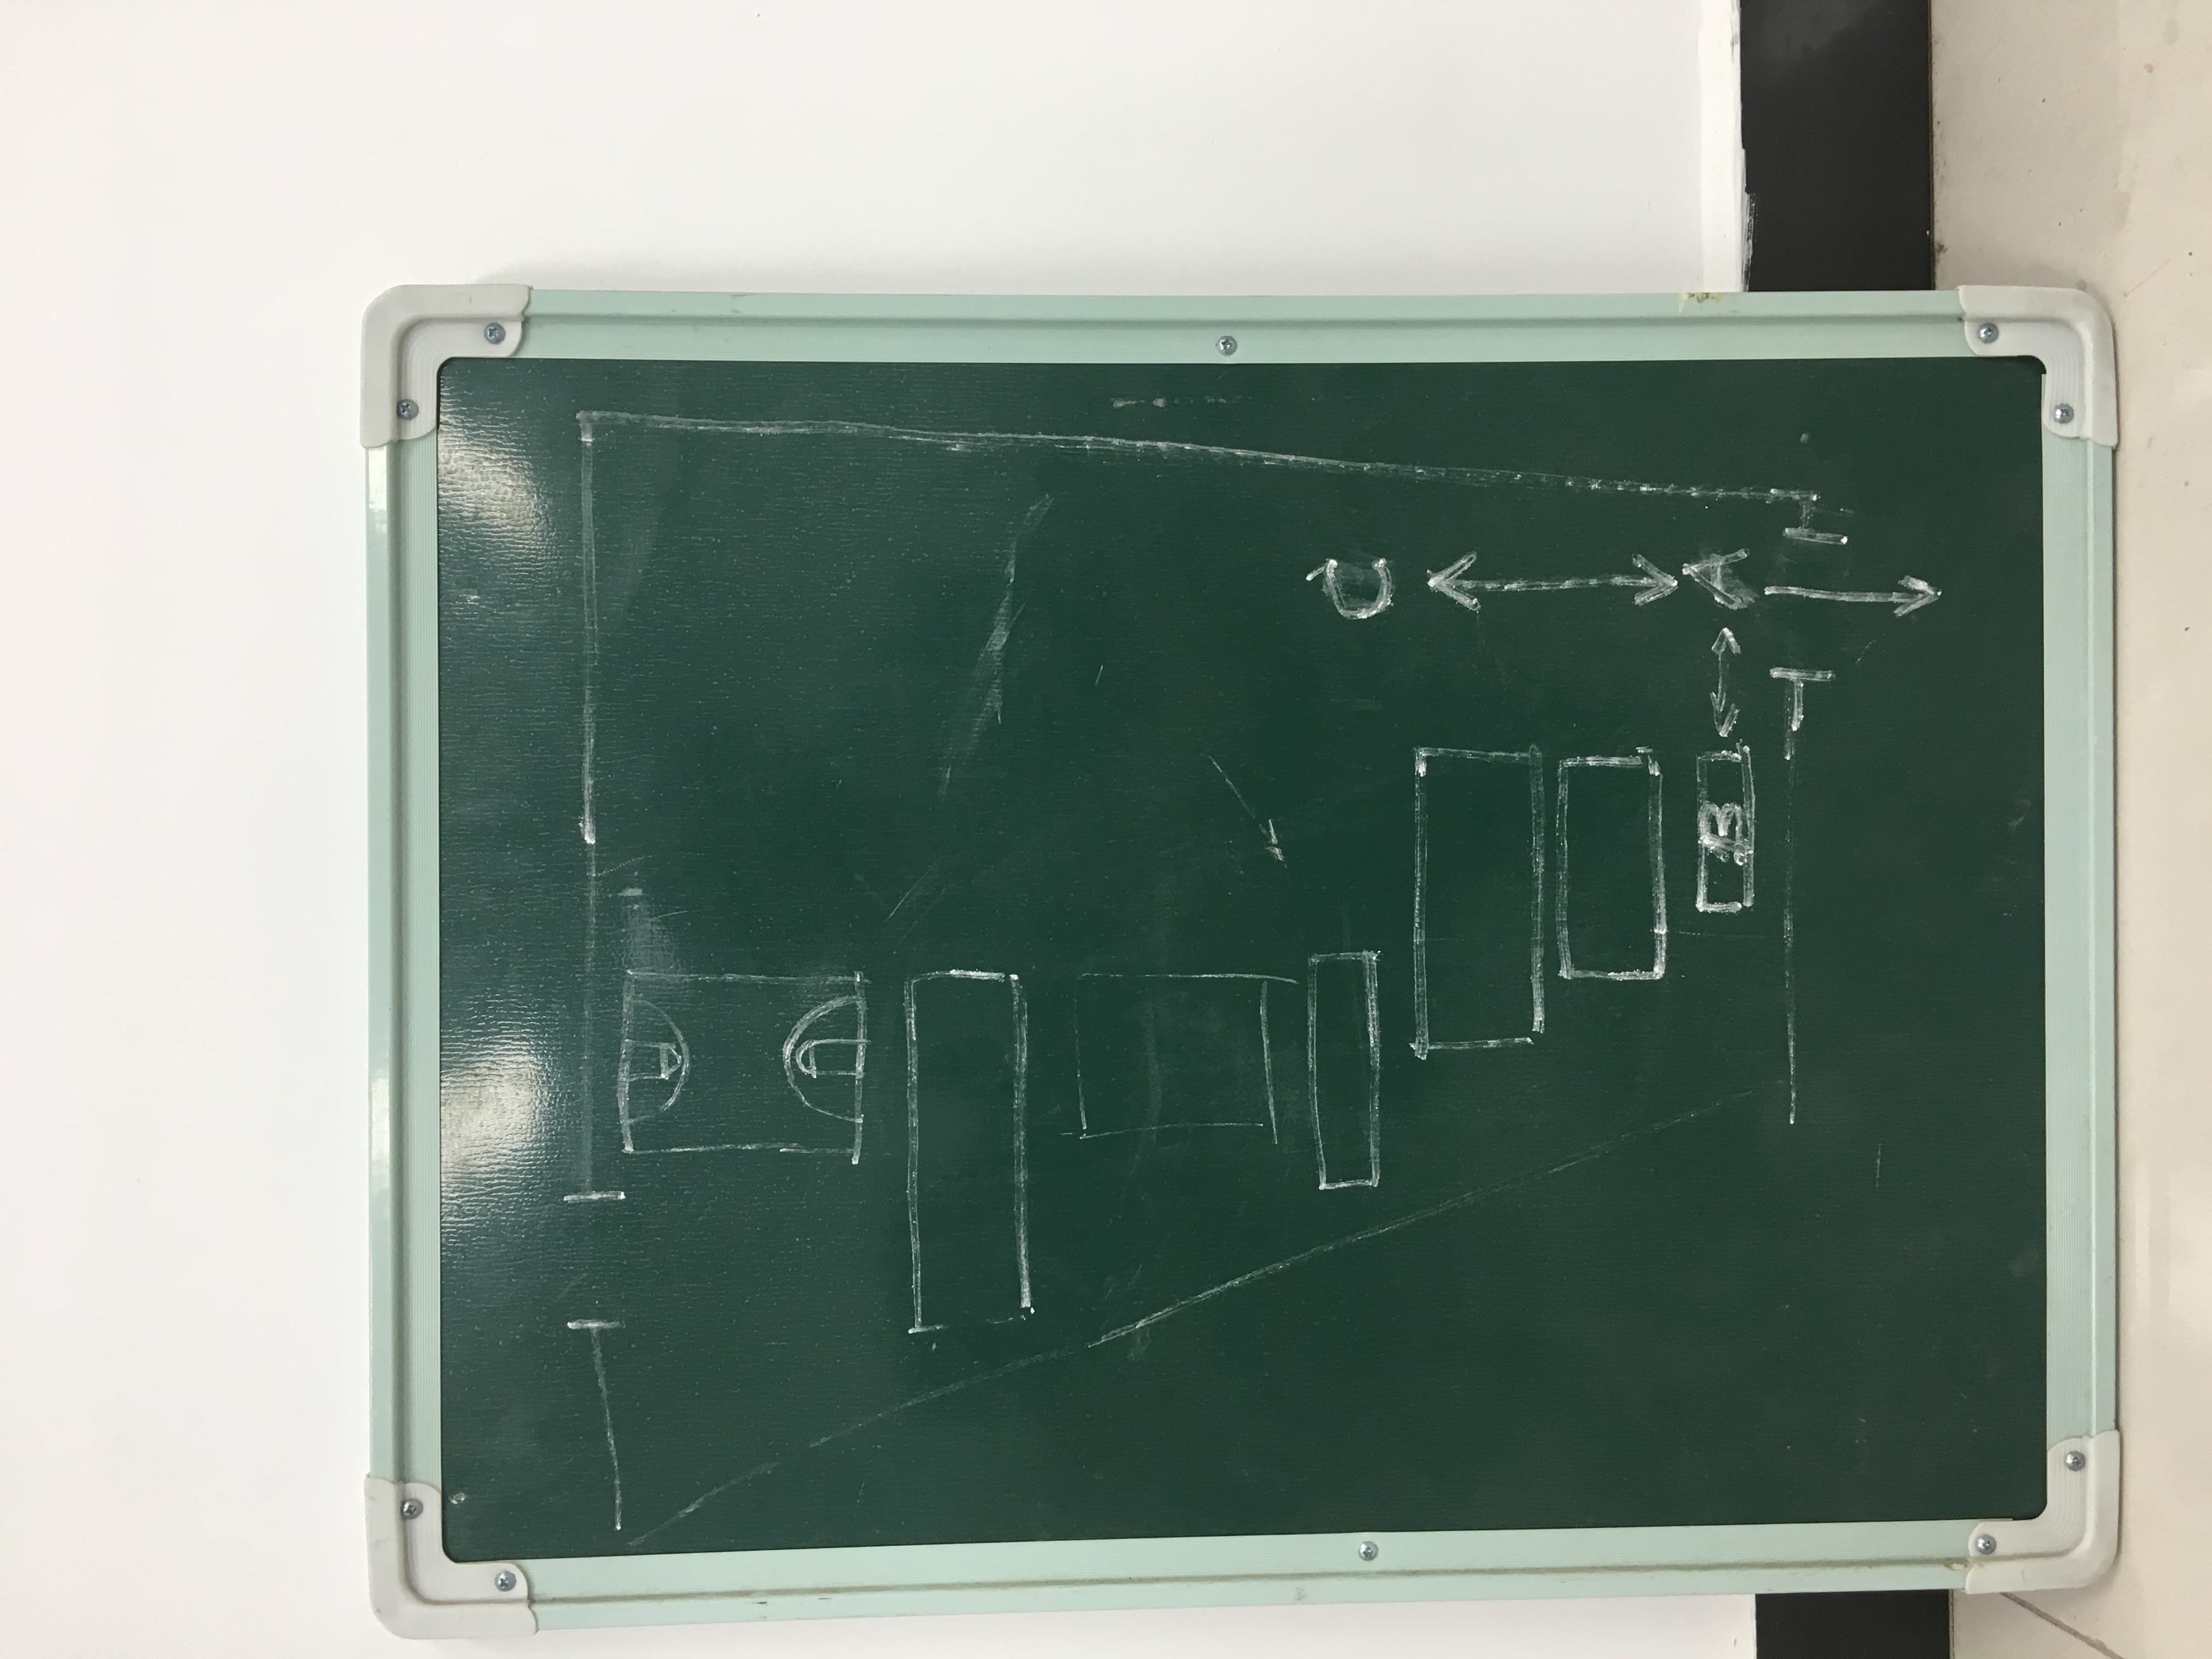 C
B A